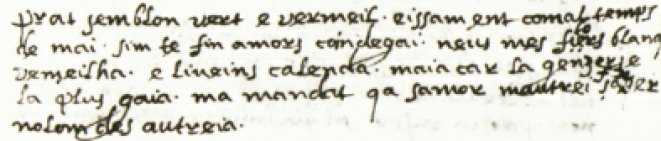 prat semblon vert e vermeil. eissament comal temps
de mai. sim te fin amors coindegai. neus mes flors blanq
vermeilha. e liverns calenda maia car la genzer e
la plus gaia. ma mandat qa samor mautrei
nolom des autreia.